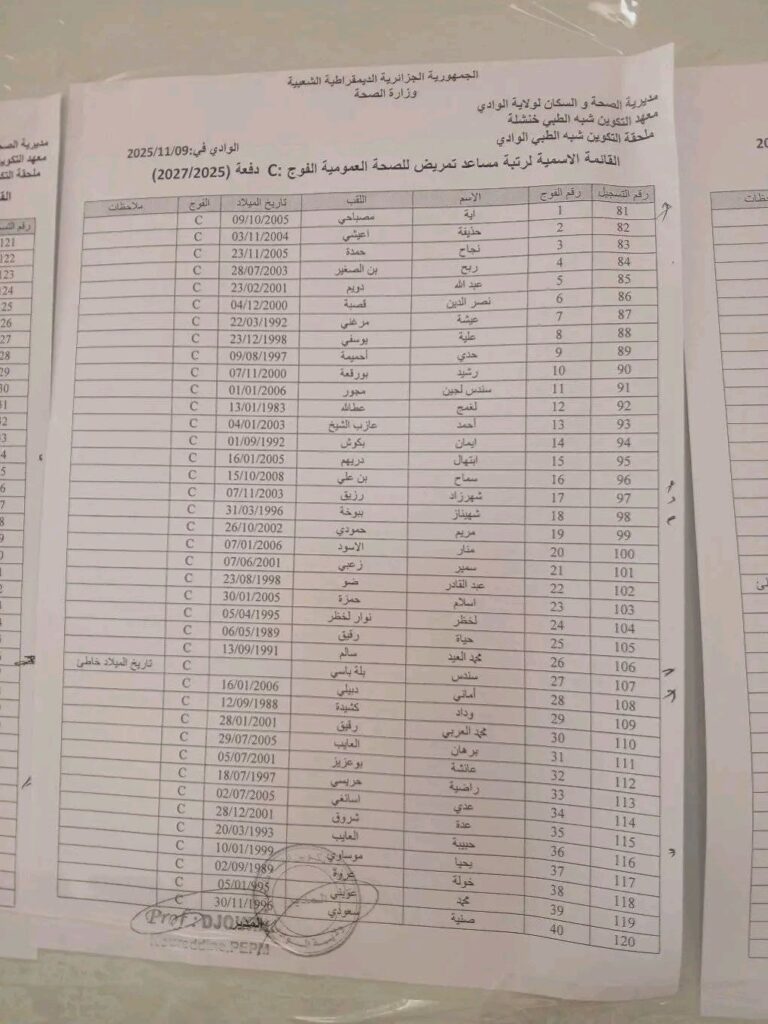 الجمهورية الجزائرية الديمقراطية الشعبية
وزارة الصحة
مديرية الصحة و السكان لولاية الوادي
معهد التكوين شبه الطبي خنشلة
ملحقة التكوين شبه الطبي الوادي
الوادي في:2025/11/09
القائمة الاسمية لرتبة مساعد تمريض للصحة العمومية الفوج :C دفعة (2027/2025)
رقم التسجيل رقم الفوج الاسم اللقب تاريخ الميلاد الفوج ملاحظات
81 1 اية مصباحي 09/10/2005 C
82 2 حذيفة اعيشي 03/11/2004 C
83 3 نجاح حمدة 23/11/2005 C
84 4 ربح بن الصغير 28/07/2003 C
85 5 عبد الله دويم 23/02/2001 C
86 6 نصر الدين قصبة 04/12/2000 C
87 7 عيشة مرغني 22/03/1992 C
88 8 علية يوسفي 23/12/1998 C
89 9 حدي أحميمة 09/08/1997 C
90 10 رشيد بورقعة 07/11/2000 C
91 11 سندس لجين مجور 01/01/2006 C
92 12 لغمج عطالله 13/01/1983 C
93 13 أحمد عازب الشيخ 04/01/2003 C
94 14 ايمان بكوش 01/09/1992 C
95 15 ابتهال دريهم 16/01/2005 C
96 16 سماح بن علي 15/10/2008 C
97 17 شهرزاد رزيق 07/11/2003 C
98 18 شهيناز ببوخة 31/03/1996 C
99 19 مريم حمودي 26/10/2002 C
100 20 منار الاسود 07/01/2006 C
101 21 سمير زعبي 07/06/2001 C
102 22 عبد القادر ضو 23/08/1998 C
103 23 اسلام حمزة 30/01/2005 C
104 24 لخظر نوار لخظر 05/04/1995 C
105 25 حياة رقيق 06/05/1989 C
106 26 محمد العيد سالم 13/09/1991 C
107 27 سندس بلة باسي C تاريخ الميلاد خاطئ
108 28 أماني دبيلي 16/01/2006 C
109 29 وداد كشيدة 12/09/1988 C
110 30 محمد العربي رقيق 28/01/2001 C
111 31 برهان العايب 29/07/2005 C
112 32 عائشة بوعزيز 05/07/2001 C
113 33 راضية حريسي 18/07/1997 C
114 34 عدي اسانغي 02/07/2005 C
115 35 عدة شروق 28/12/2001 C
116 36 حبيبة العايب 20/03/1993 C
117 37 يحيا موساوي 10/01/1999 C
118 38 خولة عروة 02/09/1989 C
119 39 محمد عويني 05/01/995 C
120 40 صنية سعودي 30/11/1996 C
المدير
Prof : DJOU
Noureddine.PEPM